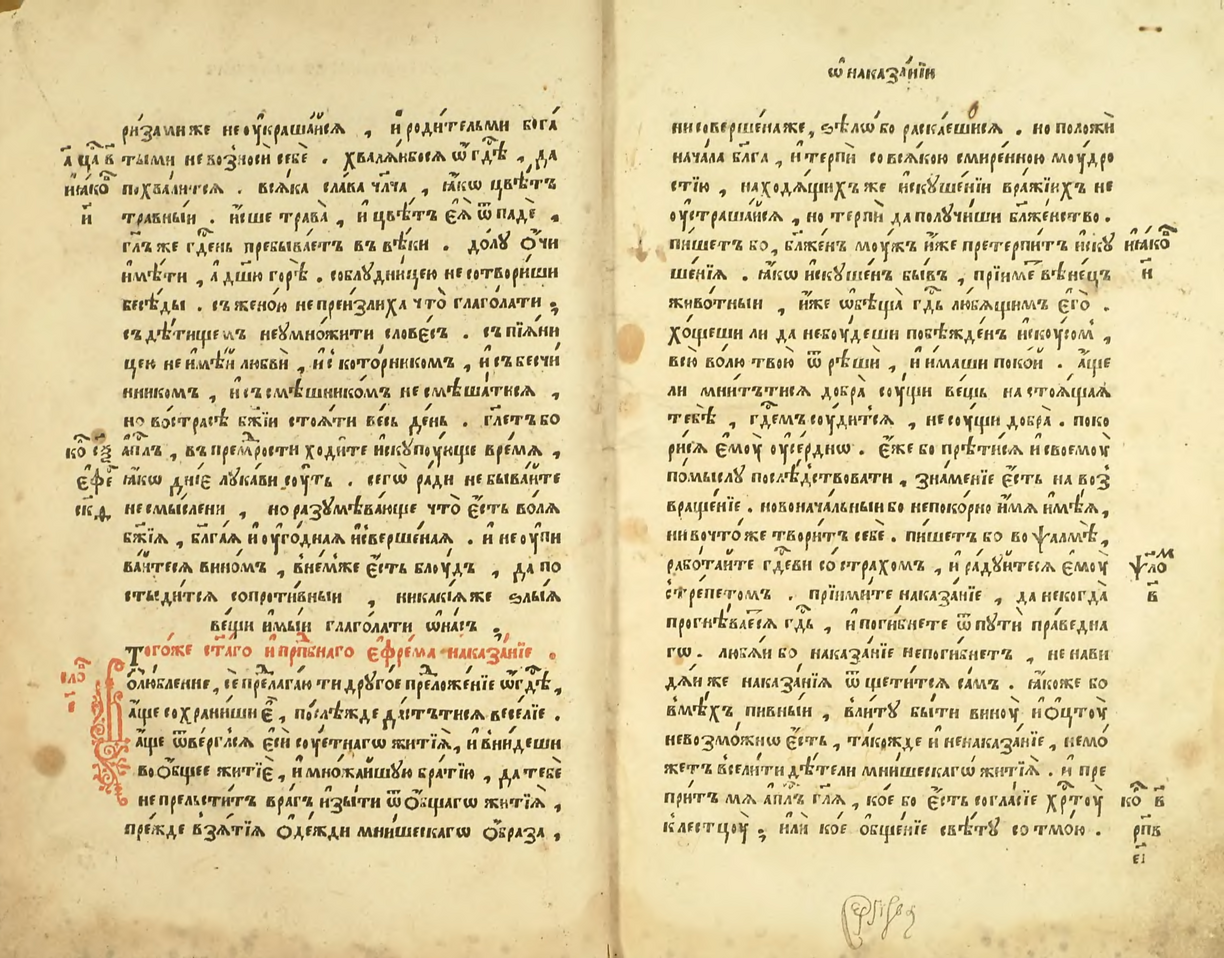 ризами же не ѹ҆краша́йсѧ , и҆ роди́тельми бога́
а ца в тыми не возноси́ себѐ . хвалѧ́йбосѧ ѡ҆ гдⷭ҇ѣ , да
и҆са́ко похва́литсѧ . всѧ́ка сла́ва чл҃ча , ꙗ҆́кѡ цвѣ́тъ
и҃ травный . и҆́сше трава̀ , и҆ цвѣ́тъ є҆ѧ̀ ѿпадѐ ,
гл҃ъ же гдⷭ҇ень пребыва́етъ въ вѣ́ки . до́лꙋ ѻ҆́чи
и҆мѣ́ти , а҆ дш҃ю горѣ̀ . со блꙋдни́цею не сотвори́ши
бесѣ́ды . съ жено́ю не преизлиха что̀ глаго́лати ;
съ дѣ́тищемъ неꙋмно́жити слове́съ . съ пїѧ́ни
цею не и҆мѣ́й любвѝ , и҆ с̾ кото́рникомъ , и҆ съ бесчи́
нникомъ , и҆ съ смѣшнико́мъ не смѣша́тисѧ ,
но во́ страсѣ бж҃їи стоѧ́ти ве́сь де́нь . гл҃етъ бо
ко сѯ҃ а҆пⷭ҇лъ , въ премⷣрости ходи́те и҆скꙋпꙋ́юще вре́мѧ ,
є҆фе ꙗ҆́кѡ дні́е лꙋка́ви сꙋ́ть . сегѡ̀ ра́ди не быва́йте
ск҃д несмы́слени , но разꙋмѣва́юще что̀ є҆́сть во́лѧ
бж҃їѧ , блг҃а́ѧ и҆ ѹ҆го́дная и҆ сверше́наѧ . и҆ не ѹ҆пи
ва́йтесѧ вино́мъ , в не́мже є҆́сть блꙋ́дъ , да по
стыди́тсѧ сопроти́вный , никакі́ѧже ѕлы́ѧ
ве́щи и҆мы́й глаго́лати ѡ҆ на́съ .
Того́же ст҃а́го и҆ прпⷣбнаго є҆фре́ма наказа́нїе .
сло ѻ҆лю́бленне, се прⷣелага́ю ти дрꙋго́е прⷣеложе́нїе ѡ҆ гдⷭ҇ѣ ,
і҃ а҆́ще сохрани́ши є҆̀ , послѣ́жде да́стътисѧ весе́лїе .
а҆́ще ѿве́рглсѧ є҆сѝ сꙋ́етнагѡ житїѧ̀ , и҆ вни́деши
во ѻ҆́бщее житїѐ , и҆ мно́жайшꙋю бра́тїю , да тебѐ
не прельсти́тъ вра́гъ и҆зы́ти ѿ ѻ҆́бщагѡ житїѧ̀ ,
пре́жде взѧ́тїѧ ѻ҆де́жди мни́шескагѡ ѻ҆́браза ,
ѡ҆ наказа́нїи
ни соверше́на же , ѕѣлѡ̀ бо раска́ешисѧ . но положѝ
нача́ла блг҃а , и҆ терпѝ со всѧ́кою смире́нною мꙋ́дро
стїю , находѧ́щихъ же и҆скꙋше́нїи вра́жїихъ не
ѹ҆страша́йсѧ , но терпѝ да полꙋчи́ши блаже́нство .
пи́шетъ бо , блаже́н мꙋ́жъ и҆́же претерпи́тъ и҆скꙋ и҆са́ко
ше́нїѧ . ꙗ҆́кѡ и҆скꙋше́нъ бы́въ , прїи́ме вѣне́цъ и҃
живо́тный , и҆́же ѡ҆бѣща̀ гдⷭ҇ь лю́бѧщимъ є҆го̀ .
хо́щеши ли да не бꙋ́деши побѣжде́нъ и҆скꙋсом̾ ,
всю̀ во́лю твою̀ ѿрѣшѝ , и҆ и҆́маши поко́й . а҆́ще
ли мни́тътисѧ добра̀ сꙋ́щи ве́щь настоѧ́щаѧ
тебѣ̀ , гдⷭ҇емъ сꙋ́дитсѧ , не сꙋ́щи добра̀ . поко
ри́сѧ є҆мꙋ̀ ѹ҆се́рднѡ . є҆́же бо прѣ́тисѧ и҆ своемꙋ̀
по́мыслꙋ послѣ́дствовати , зна́менїе є҆́сть на воз
враще́нїе . новонача́льный бо непоко́рно и҆́мѧ и҆мѣ́ѧ ,
ни во что́же твори́тъ себѐ . пи́шетъ бо во ѱалмѣ̀ ,
рабо́тайте гдⷭ҇еви со стра́хомъ , и҆ ра́дꙋйтесѧ є҆мꙋ̀ ѱаⷧ҇о
с̾ тре́петомъ . прїими́те наказа́нїе , да не когда̀ в҃
прогнѣ́ваесѧ гдⷭ҇ь , и҆ поги́бнете ѿ пꙋтѝ пра́ведна
гѡ . любѧ́й бо наказа́нїе не поги́бнетъ , ненави
дѧ́й же наказа́нїѧ ѿщети́тсѧ са́мъ . ꙗ҆́коже бо
в мѣ́хъ пи́вный , влитꙋ̀ бы́ти винꙋ̀ и҆ ѻ҆́цтꙋ
невозмо́жнѡ є҆́сть , та́кожде и҆ ненаказа́нїе , не мо́
жетъ всели́ти дѣ́тели мни́шескагѡ житїѧ̀ . и҆ пре
при́тъ мѧ а҆пⷭ҇лъ гл҃ѧ , ко́е бо є҆́сть согла́сїе хрⷭ҇тꙋ̀ ко в҃
к̾ лестцꙋ̀ ; и҆лѝ ко́е ѻ҆бще́нїе свѣ́тꙋ со тмо́ю . рпв
є҃і